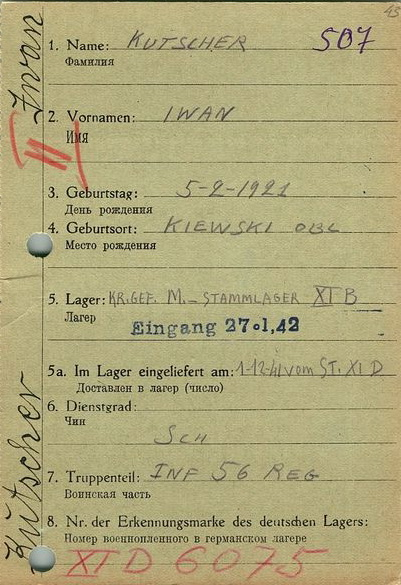 43
Iwan
Kutscher
II
1. Name: KUTSCHER 507
Фамилия
2. Vornamen: IWAN
Имя
3. Geburtstag: 5-2-1921
День рождения
4. Geburtsort: KIEWSKI OBL
Место рождения
5. Lager: KR.GEF. M.-STAMMLAGER XI B
Лагер
Eingang 27.1.42
5a. Im Lager eingeliefert am: 1-12-41 vom ST. XI D
Доставлен в лагер (число)
6. Dienstgrad:
Чин
SCH
7. Truppenteil: INF 56 REG
Воинская часть
8. Nr. der Erkennungsmarke des deutschen Lagers:
Номер военнопленного в германском лагере
XI D 6075